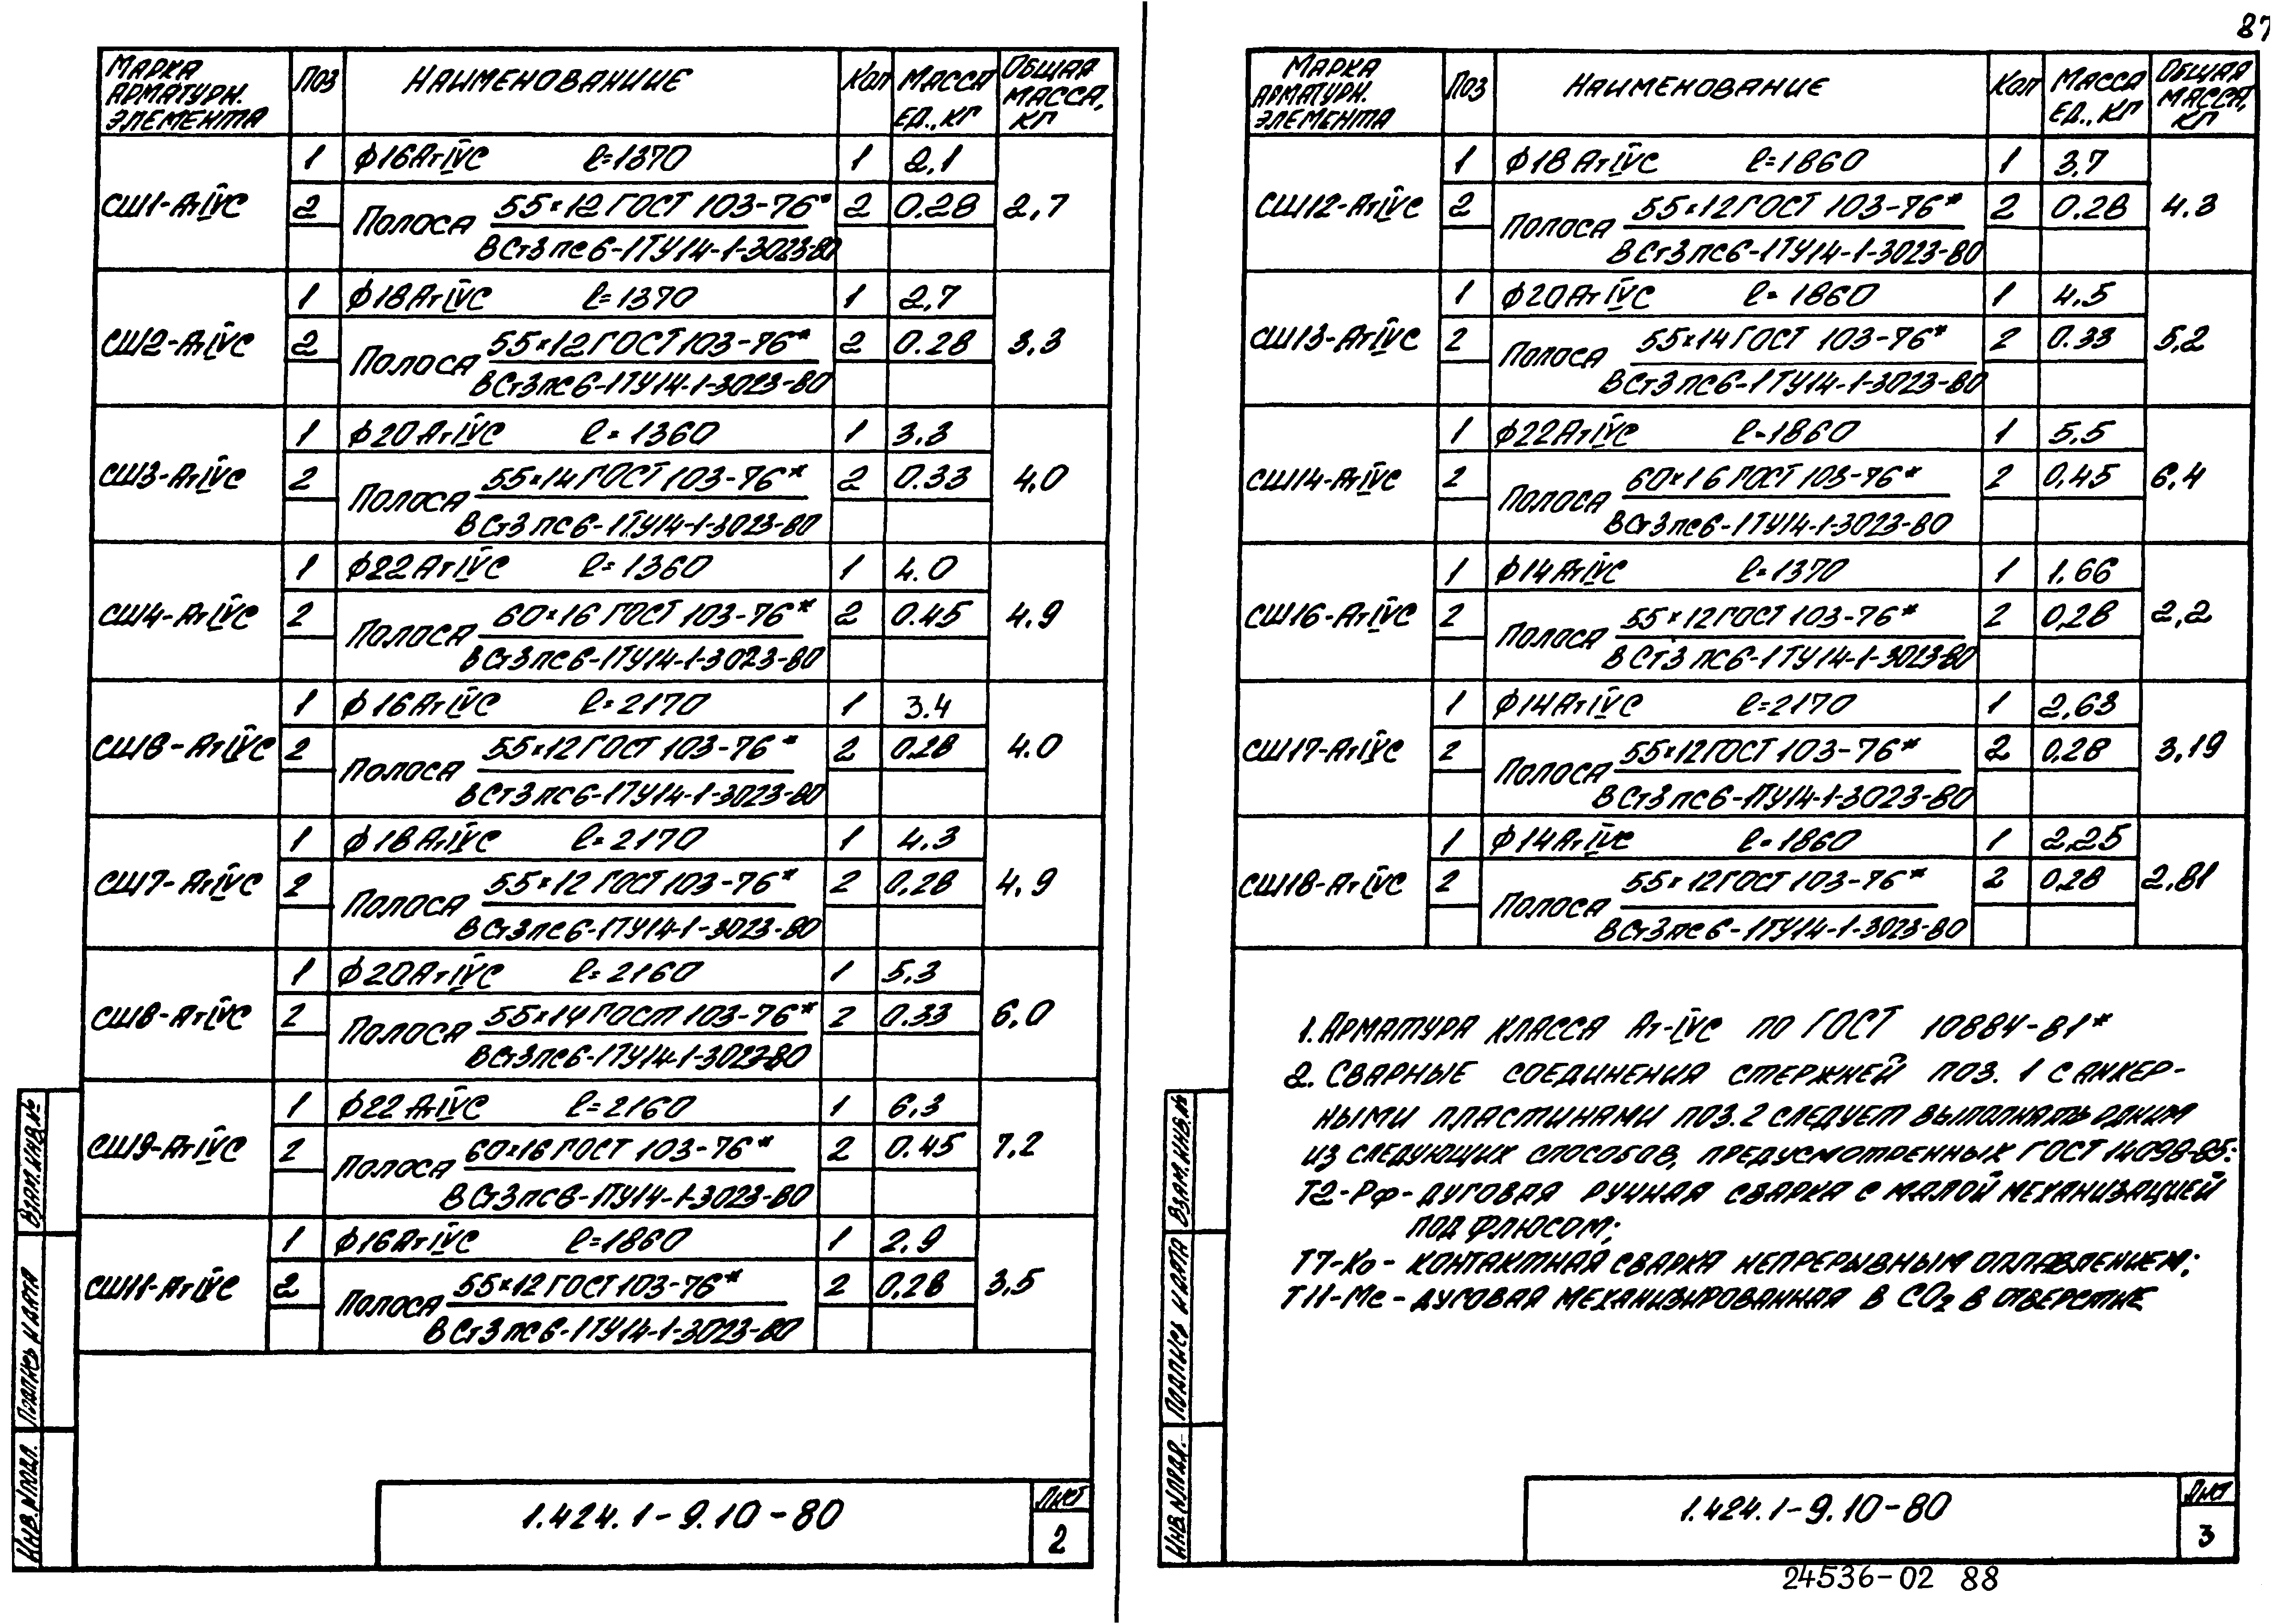 87
Марка арматурн. элемента Поз Наименованиие Кол Масса ед., кг Общая масса, кг
СШ1-АтIVС 1 ф16АтIVС ℓ=1370 1 2,1 2,7
2 Полоса 55×12 ГОСТ 103-76* 2 0.28
ВСт3пс6-1ТУ14-1-3023-80
СШ2-АтIVС 1 ф18АтIVС ℓ=1370 1 2,7 3,3
2 Полоса 55×12 ГОСТ 103-76* 2 0.28
ВСт3пс6-1ТУ14-1-3023-80
СШ3-АтIVС 1 ф20АтIVС ℓ=1360 1 3.3 4,0
2 Полоса 55×14 ГОСТ 103-76* 2 0.33
ВСт3пс6-1ТУ14-1-3023-80
СШ4-АтIVС 1 ф22АтIVС ℓ=1360 1 4.0 4,9
2 Полоса 60×16 ГОСТ 103-76* 2 0.45
ВСт3пс6-1ТУ14-1-3023-80
СШ6-АтIVС 1 ф16АтIVС ℓ=2170 1 3.4 4.0
2 Полоса 55×12 ГОСТ 103-76* 2 0.28
ВСт3пс6-1ТУ14-1-3023-80
СШ7-АтIVС 1 ф18АтIVС ℓ=2170 1 4.3 4,9
2 Полоса 55×12 ГОСТ 103-76* 2 0,28
ВСт3пс6-1ТУ14-1-3023-80
СШ8-АтIVС 1 ф20АтIVС ℓ=2160 1 5,3 6,0
2 Полоса 55×14 ГОСТ 103-76* 2 0.33
ВСт3пс6-1ТУ14-1-3023-80
СШ9-АтIVС 1 ф22АтIVС ℓ=2160 1 6,3 7,2
2 Полоса 60×16 ГОСТ 103-76* 2 0.45
ВСт3пс6-1ТУ14-1-3023-80
СШ11-АтIVС 1 ф16АтIVС ℓ=1860 1 2,9 3,5
2 Полоса 55×12 ГОСТ 103-76* 2 0,28
ВСт3пс6-1ТУ14-1-3023-80
Взам.инв.№
Подпись и дата
Инв.№подл.
1.424.1-9.10-80
Лист
2
Марка арматурн. элемента Поз Наименование Кол Масса ед., кг Общая масса, кг
СШ12-АтIVС 1 ф18АтIVС ℓ=1860 1 3,7 4.3
2 Полоса 55×12 ГОСТ 103-76* 2 0.28
ВСт3пс6-1ТУ14-1-3023-80
СШ13-АтIVС 1 ф20АтIVС ℓ=1860 1 4.5 5,2
2 Полоса 55×14 ГОСТ 103-76* 2 0.33
ВСт3пс6-1ТУ14-1-3023-80
СШ14-АтIVС 1 ф22АтIVС ℓ=1860 1 5,5 6,4
2 Полоса 60×16 ГОСТ 103-76* 2 0,45
ВСт3пс6-1ТУ14-1-3023-80
СШ16-АтIVС 1 ф14АтIVС ℓ=1370 1 1,66 2,2
2 Полоса 55×12 ГОСТ 103-76* 2 0,28
ВСт3пс6-1ТУ14-1-3023-80
СШ17-АтIVС 1 ф14АтIVС ℓ=2170 1 2,63 3,19
2 Полоса 55×12 ГОСТ 103-76* 2 0,28
ВСт3пс6-1ТУ14-1-3023-80
СШ18-АтIVС 1 ф14АтIVС ℓ=1860 1 2,25 2,81
2 Полоса 55×12 ГОСТ 103-76* 2 0,28
ВСт3пс6-1ТУ14-1-3023-80
1. Арматура класса Ат-IVС по ГОСТ 10884-81*
2. Сварные соединения стержней поз. 1 с анкер-
ными пластинами поз.2 следует выполнять одним
из следующих способов, предусмотренных ГОСТ 14098-85:
Т2-Рф - дуговая ручная сварка с малой механизацией
под флюсом;
Т7-Ко - контактная сварка непрерывным оплавлением;
Т11-Мс - дуговая механизированная в СО2 в отверстие
Взам.инв.№
Подпись и дата
Инв.№подл.
1.424.1-9.10-80
Лист
3
24536-02 88